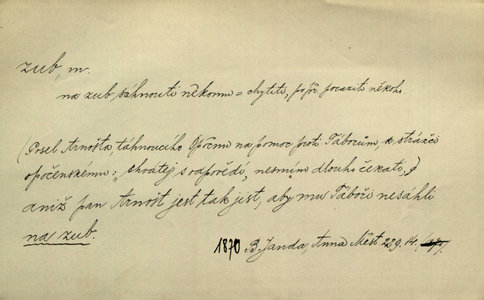 zub, m.
na zub sáhnouti někomu = chytiti, popř. poraziti někoho.
(Posel Arnošta, táhnoucího Opočnu na pomoc proti Táborům, k strážci
opočenskému:, chvátej s odpovědí, nesmím dlouho čekati,)
aniž pan Arnošt jest tak jest, aby mu Táboři nesáhli
na zub.
1870 B. Janda, Anna Měst. 229. 14.